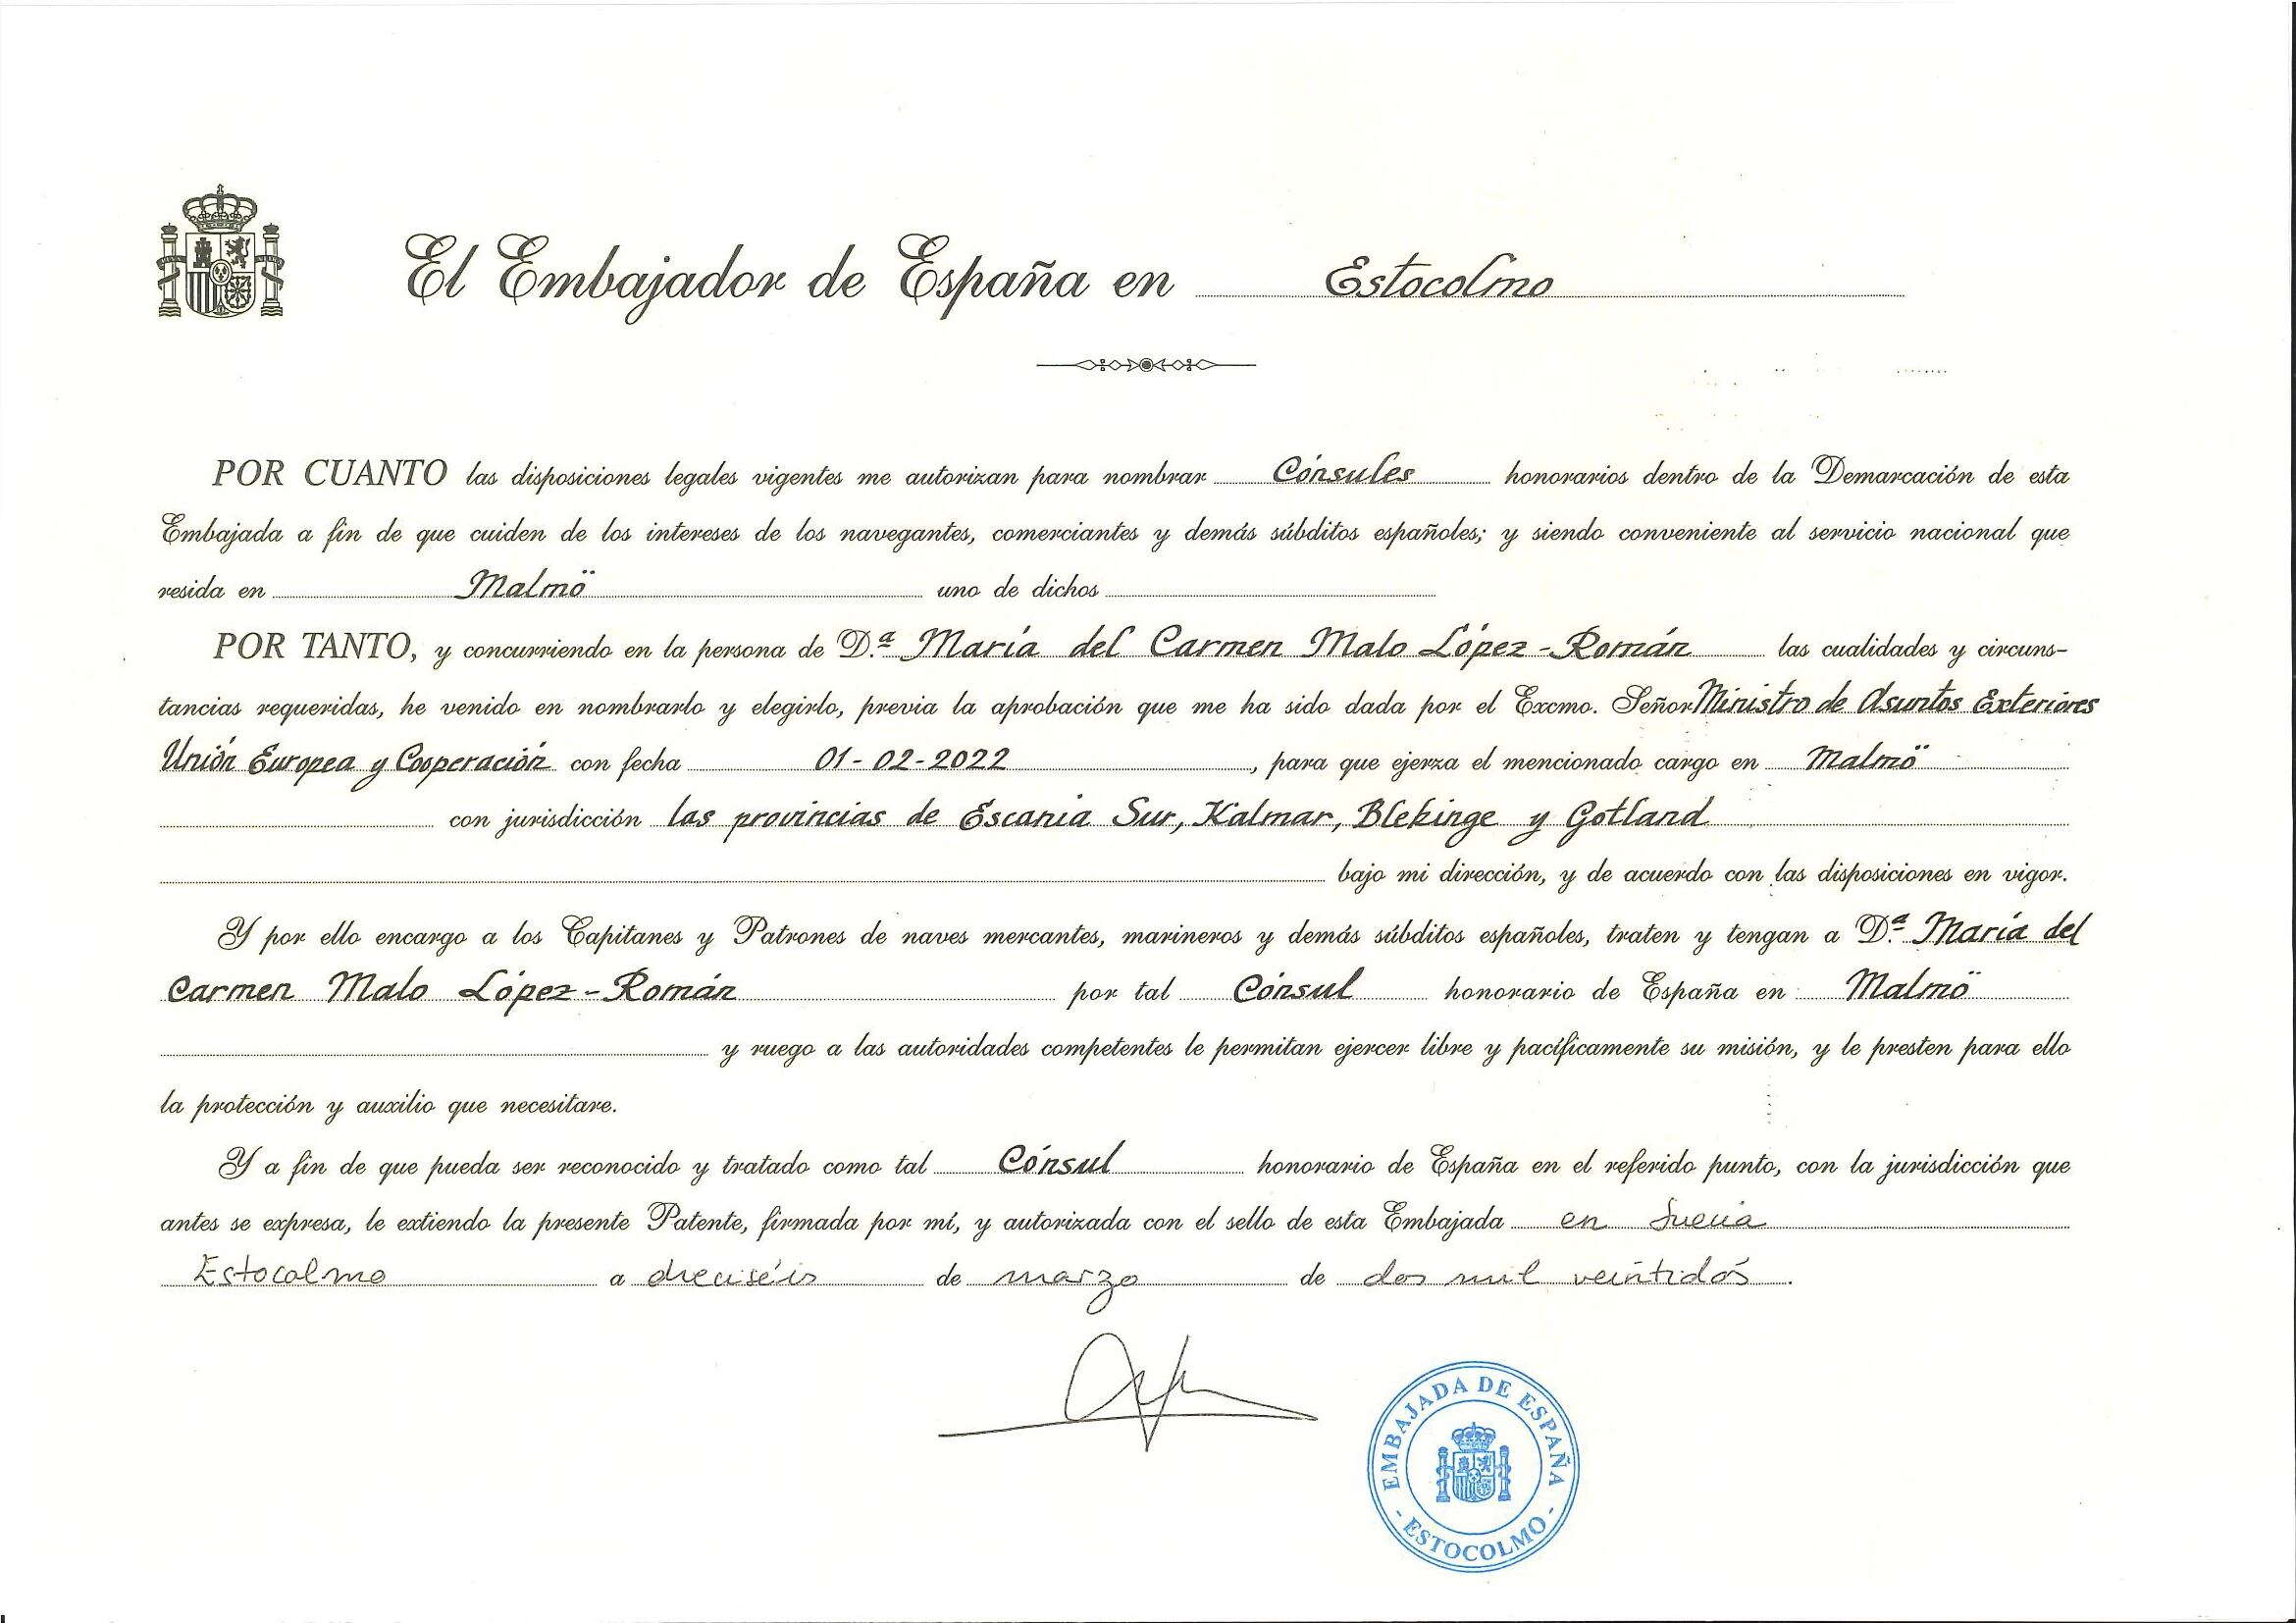 El Embajador de España en Estocolmo
POR CUANTO las disposiciones legales vigentes me autorizan para nombrar Cónsules honorarios dentro de la Demarcación de esta
Embajada a fin de que cuiden de los intereses de los navegantes, comerciantes y demás súbditos españoles; y siendo conveniente al servicio nacional que
resida en Malmö uno de dichos
POR TANTO, y concurriendo en la persona de D.ª María del Carmen Malo López-Román las cualidades y circuns-
tancias requeridas, he venido en nombrarlo y elegirlo, previa la aprobación que me ha sido dada por el Excmo. Señor Ministro de Asuntos Exteriores
Unión Europea y Cooperación con fecha 01-02-2022, para que ejerza el mencionado cargo en Malmö
con jurisdicción las provincias de Escania Sur, Kalmar, Blekinge y Gotland
bajo mi dirección, y de acuerdo con las disposiciones en vigor.
Y por ello encargo a los Capitanes y Patrones de naves mercantes, marineros y demás súbditos españoles, traten y tengan a D.ª María del
Carmen Malo López-Román por tal Cónsul honorario de España en Malmö
y ruego a las autoridades competentes le permitan ejercer libre y pacíficamente su misión, y le presten para ello
la protección y auxilio que necesitare.
Y a fin de que pueda ser reconocido y tratado como tal Cónsul honorario de España en el referido punto, con la jurisdicción que
antes se expresa, le extiendo la presente Patente, firmada por mí, y autorizada con el sello de esta Embajada en Suecia
Estocolmo a dieciséis de marzo de dos mil veintidós.
EMBAJADA DE ESPAÑA
- ESTOCOLMO -